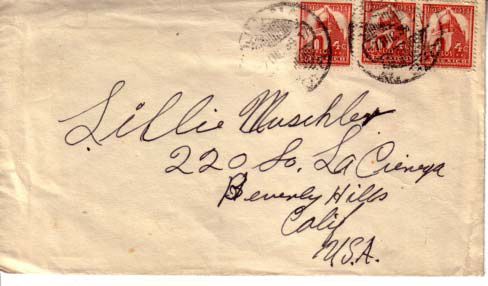 4c 4c 4c
Lillie Muschler
220 So. La Cienega
Beverly Hills
Calif
U.S.A.